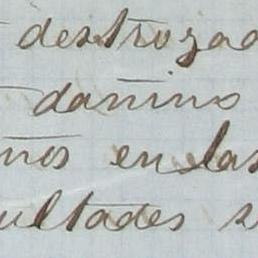 destrozad
dañino
ños en las
ultades s